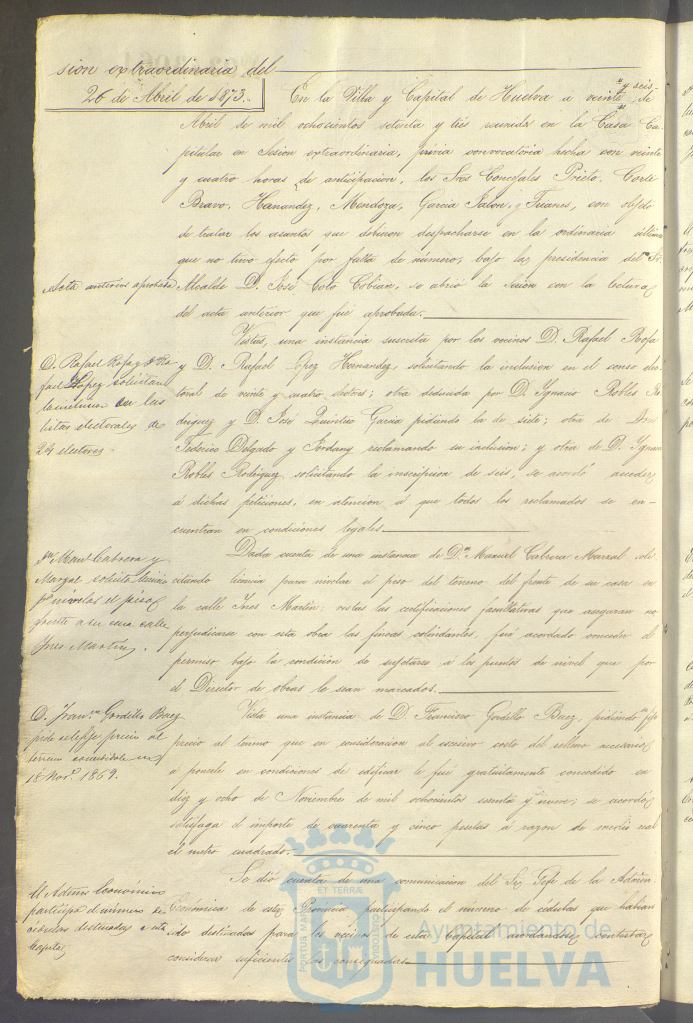 sion extraordinaria del
26 de Abril de 1873.
En la Villa y Capital de Huelva a veinte y seis de
Abril de mil ochocientos setenta y tres reunidos en la Casa Ca-
pitular en Sesion extraordinaria, previa convocatoria hecha con veinte
y cuatro horas de anticipacion, los Sres Concejales Prieto, Corte
Bravo, Hernandez, Mendoza, Garcia Jalon, y Trianes, con objeto
de tratar los asuntos que debieron despacharse en la ordinaria última
que no tuvo efecto por falta de número, bajo la presidencia del Sr
Acta anterior aprobada
Alcalde D. José Coto Cobian, se abrió la sesion con la lectura
del acta anterior que fué aprobada.
Vistas, una instancia suscrita por los vecinos D. Rafael Rofa
D. Rafael Rofa y D. Ra-
fael Lopez solicitan
la inclusion en las
listas electorales de
24 electores.
y D. Rafael Lopez Hernandez, solicitando la inclusion en el censo elec-
toral de veinte y cuatro electores; otra deducida por D. Ygnacio Robles Ro-
driguez y D. José Garcia pidiendo la de siete; otra de Don
Federico Delgado y reclamando su inclusion; y otra de D. Ygnacio
Robles Rodriguez solicitando la inscripcion de seis, se acordó acceder
á dichas peticiones, en atencion á que todos los reclamados se en-
cuentran en condiciones legales.
Dada cuenta de una instancia de Dn Manuel Cabrera Marzal soli-
Dn Manl Cabrera y
Marzal solicita licencia
pa nivelar el piso
frente a su casa calle
Ynes Martin.
citando licencia para nivelar el piso del terreno del frente de su casa en
la calle Ines Martin: vistas las certificaciones facultativas que aseguran no
perjudicarse con esta obra las fincas colindantes, fué acordado conceder el
permiso bajo la condicion de sujetarse á los puntos de nivel que por
el Director de obras le sean marcados.
Vista una instancia de D. Francisco Gordillo Baez, pidiendo se fije
D. Franco Gordillo Baez
pide se le fije precio al
terreno concedidole en
18 Novre 1869.
precio al terreno que en consideracion al excesivo costo del relleno necesario
á ponerle en condiciones de edificar le fué gratuitamente concedido en
diez y ocho de Noviembre de mil ochocientos sesenta y nueve; se acordó
satisfaga el importe de cuarenta y cinco pesetas á razon de medio real
el metro cuadrado.
Se dió cuenta de una comunicacion del Sr Jefe de la Admon
El Admor Económico
participa el número de
cédulas destinadas a esta
Capital
Económica de esta Provincia participando el número de cédulas que habian
sido destinadas para los vecinos de esta Capital acordandose contestar
considerar suficientes las consignadas.
PORTUS MARIS
ET TERRÆ
CUSTODIA
Ayuntamiento de
HUELVA